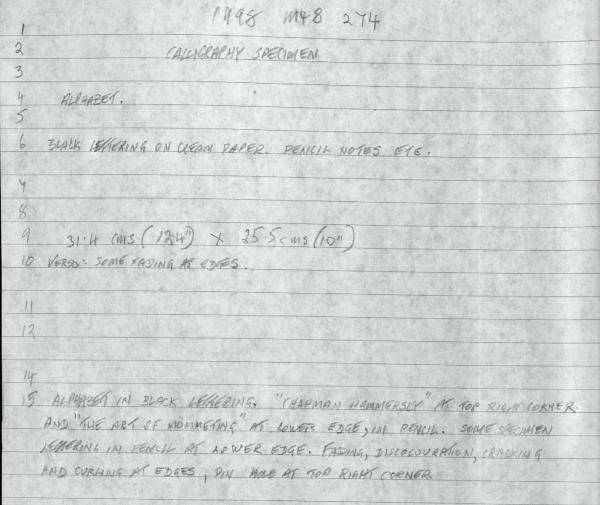 1998 M48 274
1
2 CALLIGRAPHY SPECIMEN
3
4 ALPHABET.
5
6 BLACK LETTERING ON CREAM PAPER. PENCIL NOTES ETC.
7
8
9 31.4 cms (12.4") X 25.5 cms (10")
10 VERSO: SOME FADING AT EDGES.
11
12
14
15 ALPHABET IN BLACK LETTERING. "CHAPMAN HAMMERSLY" AT TOP RIGHT CORNER
AND "THE ART OF MOMMETING" AT LOWER EDGE, IN PENCIL. SOME SPECIMEN
LETTERING IN PENCIL AT LOWER EDGE. FADING, DISCOLOURATION, CRACKING
AND CURLING AT EDGES, PIN HOLE AT TOP RIGHT CORNER.